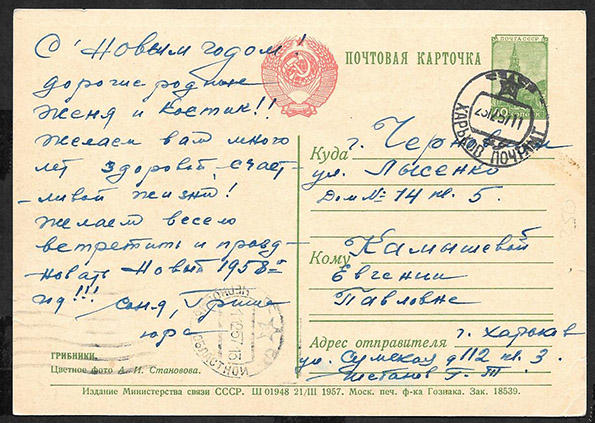 С Новым годом!
дорогие родные
Женя и Костик!!
Желаем вам много
лет здоровой, счаст-
ливой жизни!
Желаем весело
встретить и празд-
новать Новый 1958-й
год!!!
Соня, Гриша
Юра
ГРИБНИКИ.
Цветное фото А. И. Становова.
ПОЧТОВАЯ КАРТОЧКА
ПОЧТА СССР
ХАРЬКОВ ПОЧТАМТ
Куда г. Черновцы
ул. Лысенко
Дом № 14 кв. 5.
Кому Камышевой
Евгении
Павловне
Адрес отправителя г. Харьков
ул. Сумская д 112 кв. 3.
Г. Т.
Издание Министерства связи СССР. Ш 01948 21/III 1957. Моск. печ. ф-ка Гознака. Зак. 18539.